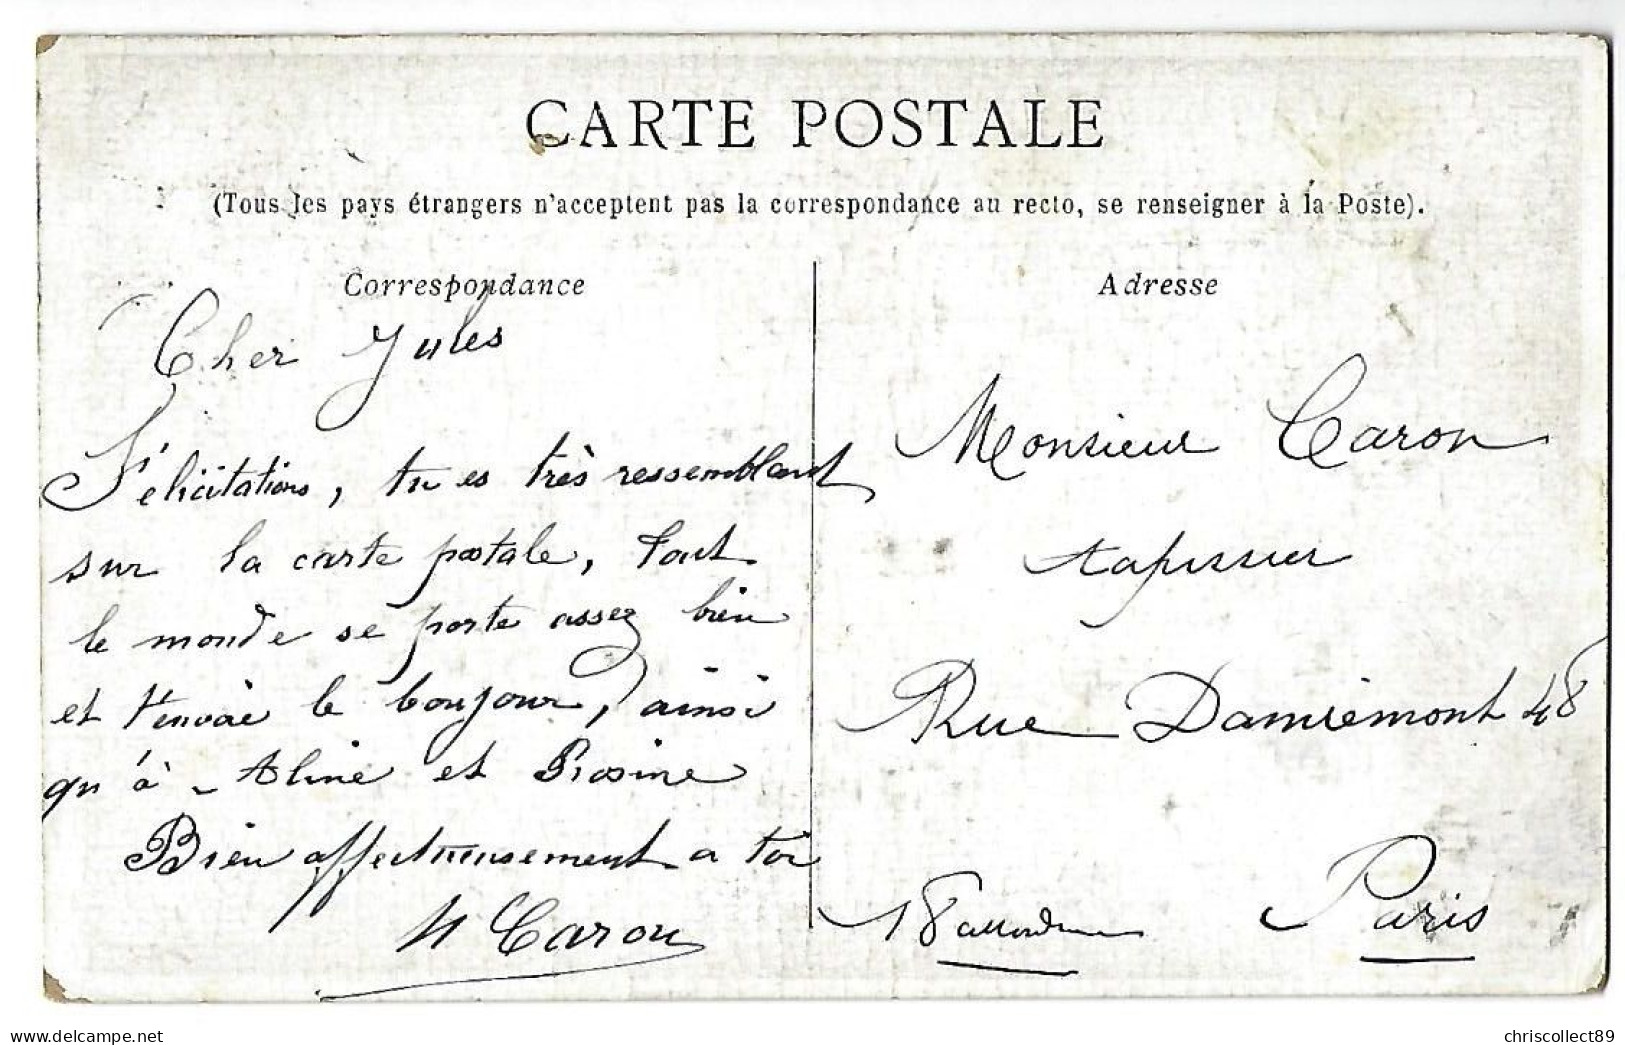 CARTE POSTALE
(Tous les pays étrangers n'acceptent pas la correspondance au recto, se renseigner à la Poste).
Correspondance
Cher Jules
Félicitations, tu es très ressemblant
sur la carte postale, tout
le monde se porte assez bien
et t'envoie le bonjour, ainsi
qu'à Aline et Rosine
Bien affectueusement a toi
H Caron
Adresse
Monsieur Caron
tapissier
Rue Damrémont 48
Paris
18 arrond
www.delcampe.net
chriscollect89